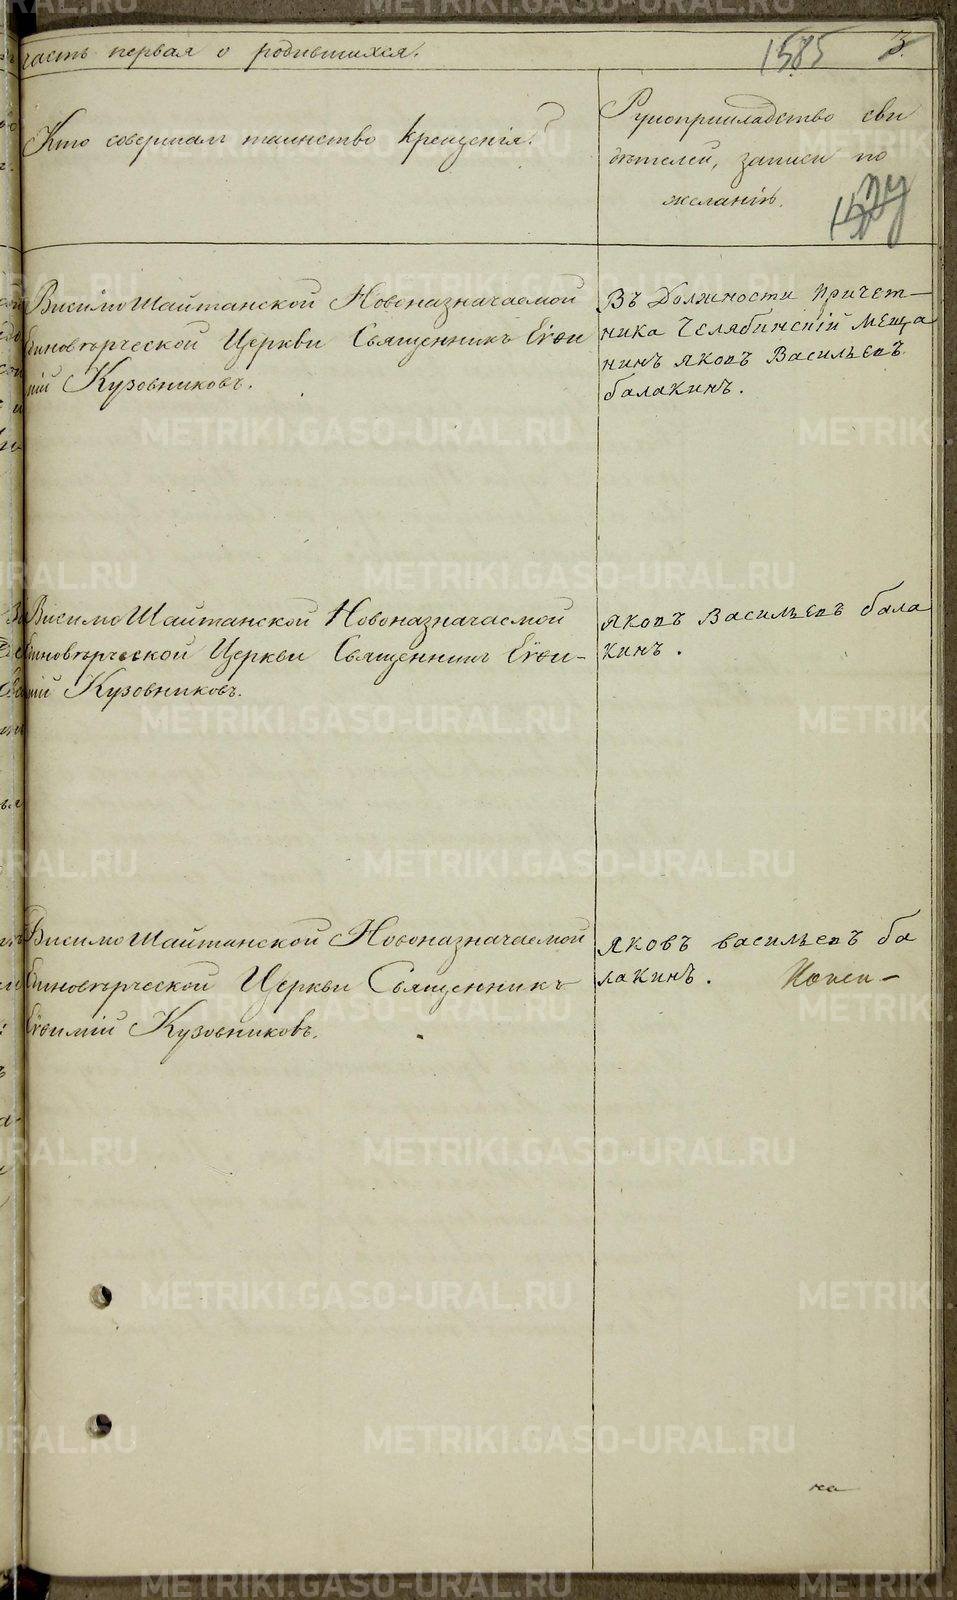 часть первая о родившихся.
1585
3.
Кто совершал таинство крещенія?
Рукоприкладство сви
дѣтелей, записи по
желанію.
Висимо Шайтанской Новоназначаемой
Единовѣрческой Церкви Священникъ Еѵѳи
мій Кузовниковъ.
Въ Должности Причет-
ника Челябинскій Меща
нинъ Яковъ Васильевъ
балакинъ.
Висимо Шайтанской Новоназначаемой
Единовѣрческой Церкви Священникъ Еѵѳи-
мій Кузовниковъ.
Яковъ Васильевъ бала
кинъ.
Висимо Шайтанской Новоназначаемой
Единовѣрческой Церкви Священникъ
Еѵѳимій Кузовниковъ.
Яковъ васильевъ ба
лакинъ.
на
METRIKI.GASO-URAL.RU